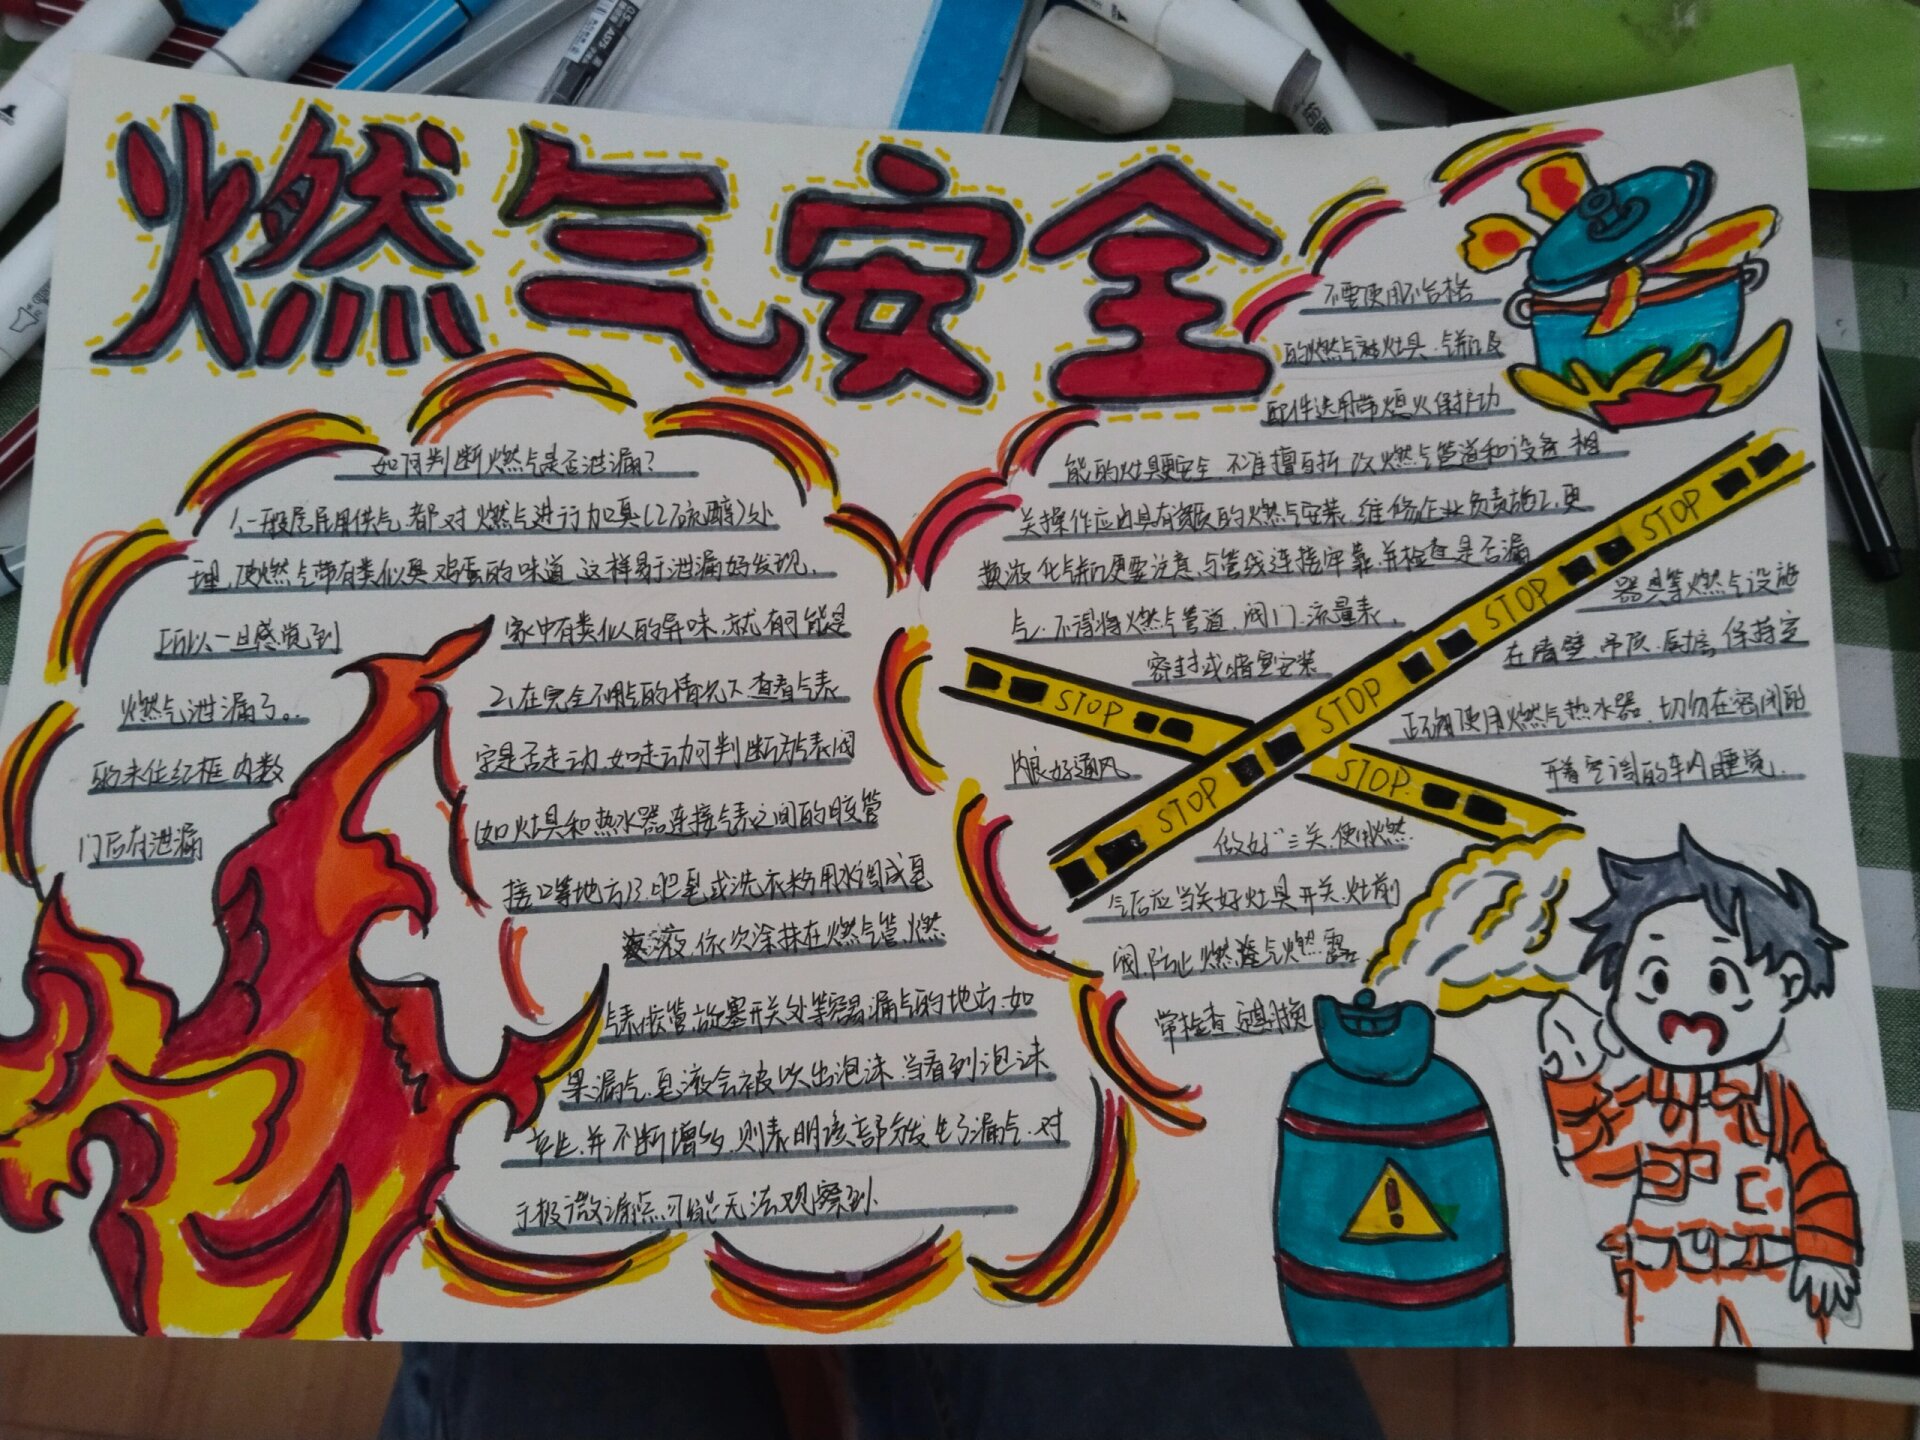 燃气安全
如何判断燃气是否泄漏?
1.一般居民用供气,都对燃气进行加臭(乙硫醇)处
理,使燃气带有类似臭鸡蛋的味道,这样易于泄漏好发现.
所以一旦感觉到
家中有类似的异味,就有可能是
燃气泄漏了。
2、在完全不用气的情况下,查看气表
的末位红框内数
字是否走动,如走动可判断气表阀
门后有泄漏
(如灶具和热水器连接气表之间的胶管
接口等地方)3.肥皂或洗衣粉用水调成皂
液,依次涂抹在燃气管,燃
气表胶管,旋塞开关处等容易漏气的地方,如
果漏气,皂液会被吹出泡沫.当看到泡沫
产生,并不断增多,则表明该部分发生了漏气.对
于极微漏点,可能无法观察到.
不要使用不合格
的燃气灶具,气瓶及
配件选用带熄火保护功
能的灶具更安全.不准擅自拆改燃气管道和设备,相
关操作应由具有资质的燃气安装,维修企业负责施工,更
换液化气瓶更要注意,与管线连接牢靠,并检查是否漏
气.不得将燃气管道,阀门,流量表,
器具等燃气设施
密封或暗室安装
在墙壁,吊顶,厨房,保持室
内良好通风
正确使用燃气热水器,切勿在密闭的
开着空调的车内睡觉.
STOP
STOP
STOP
STOP
STOP
STOP
做好"三关,使用燃
气后应当关好灶具开关,灶前
阀,防止燃
常检查,定期换